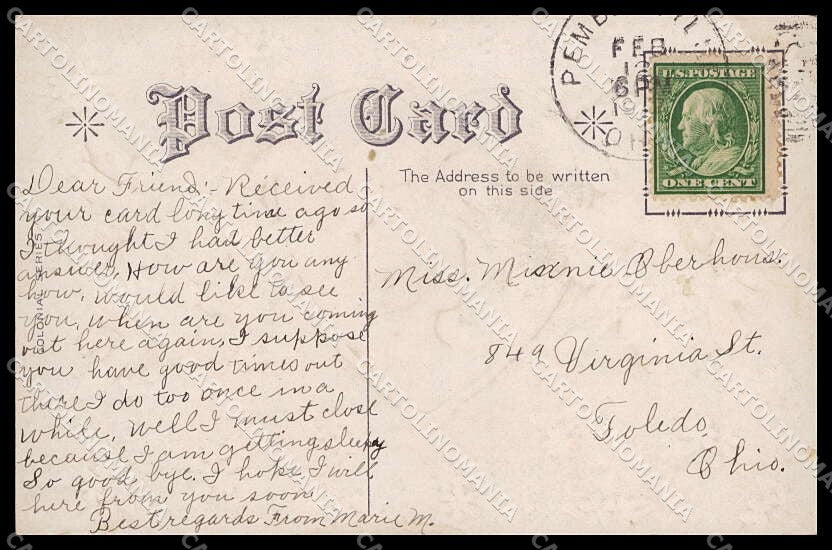 Post Card
The Address to be written
on this side
COLONIAL SERIES
PEMB
FEB
6 PM
U.S. POSTAGE
ONE CENT
Dear Friend:- Received
your card long time ago so
I thought I had better
answer. How are you any
how, would like to see
you, when are you coming
out here again, I suppose
you have good times out
there I do too once in a
while, Well I must close
because I am getting sleepy
So good bye. I hope I will
here from you soon
Best regards From Marie M.
Miss. Minnie Oberhous.
849 Virginia St.
Toledo,
Ohio.
CARTOLINOMANIA